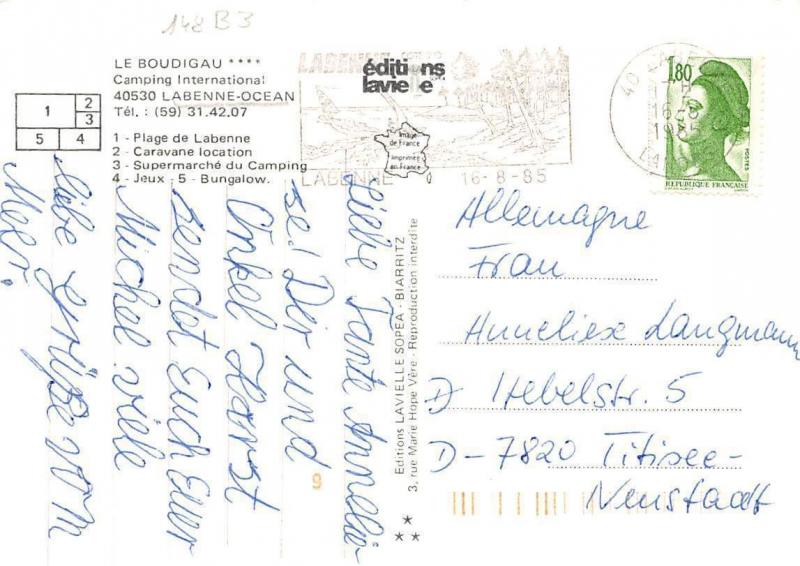 148 B 3
LE BOUDIGAU ****
Camping International
40530 LABENNE-OCEAN
Tél. : (59) 31.42.07
1 - Plage de Labenne
2 - Caravane location
3 - Supermarché du Camping
4 - Jeux - 5 - Bungalow.
1
2
3
5
4
éditions
lavielle
Image
de France
Imprimée
en France
LABENNE
LABENNE
16-8-85
40
16-8
1985
1,80
POSTES
REPUBLIQUE FRANÇAISE
Liebe Tante Annelie-
se! Dir und
Onkel Horst
sendet Euch Euer
Michel viele
liebe Grüße vom
Meer.
Editions LAVIELLE SOPEA - BIARRITZ
3, rue Marie Hope Vère - Reproduction interdite
Allemagne
Frau
Anneliese Langmann
Hebelstr. 5
D - 7820 Titisee-
Neustadt
9